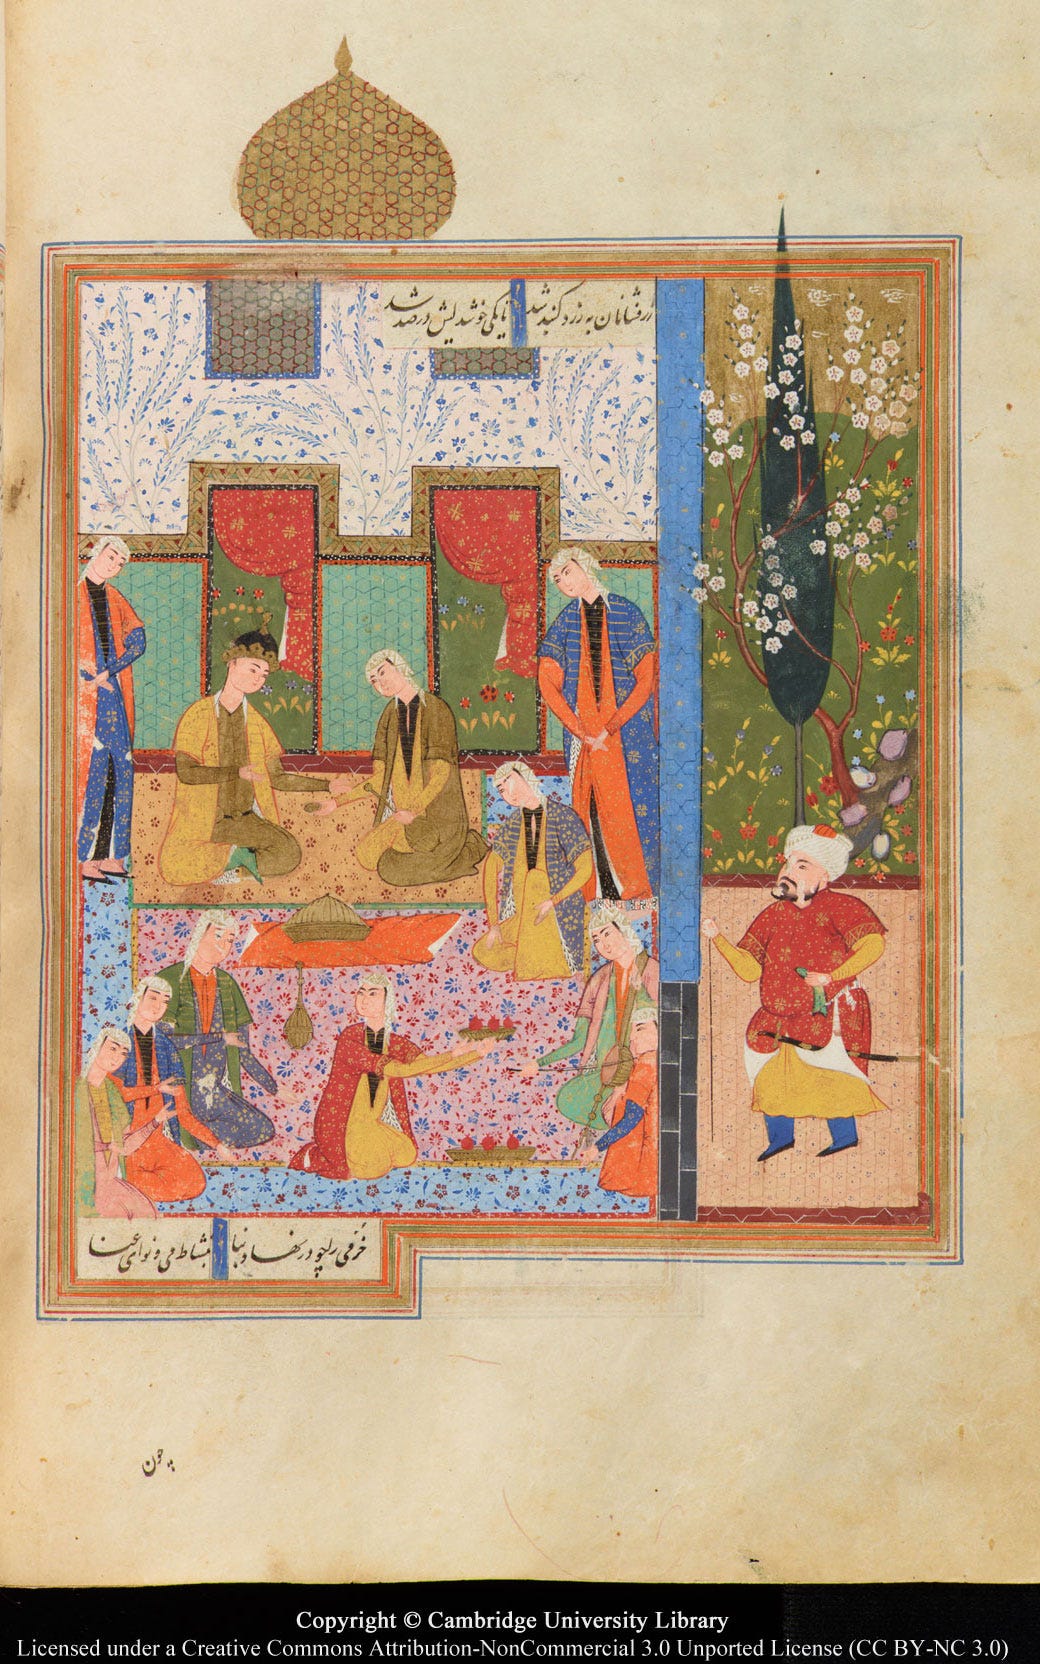 زرفشانان به زرد گنبد شد تا یکی خوشدلیش در صد شد
خرمی را چو در نهاد بنا به نشاط می و نوای غنا
چون
Copyright © Cambridge University Library
Licensed under a Creative Commons Attribution-NonCommercial 3.0 Unported License (CC BY-NC 3.0)